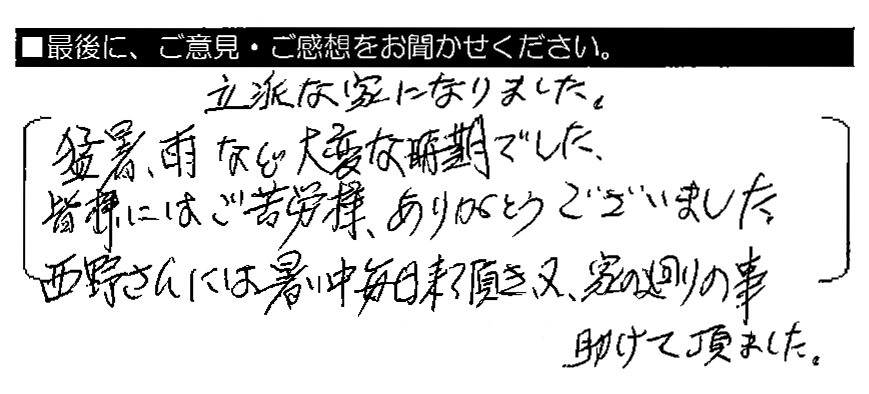 ■最後に、ご意見・ご感想をお聞かせください。
立派な家になりました。
猛暑、雨など大変な時期でした、
皆様にはご苦労様、ありがとうございました
西野さんには暑い中毎日来て頂き、又、家の廻りの事
助けて頂ました。